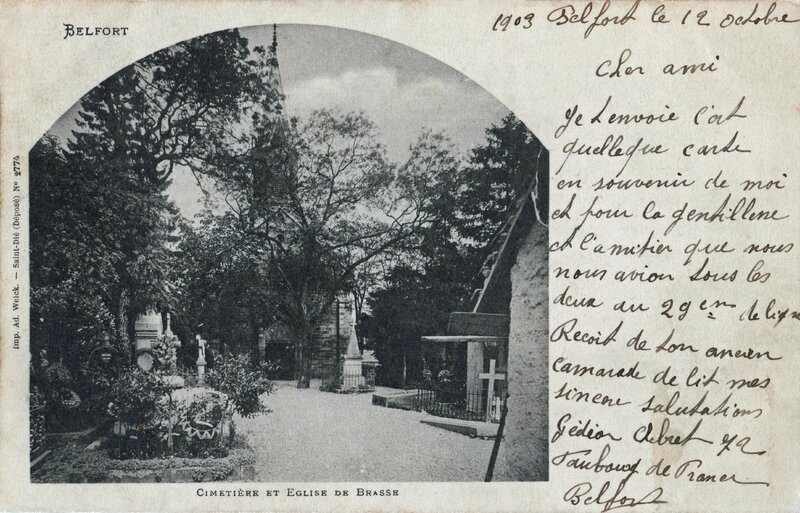 BELFORT
1903 Belfort le 12 Octobre
Cher ami
Je t envoie l'at
quelleque carte
en souvenir de moi
et pour la gentillesse
et l'amitier que nous
nous avion tous les
deux au 29em de ligne
Recoit de ton ancien
camarade de lit mes
sincere salutations
Gédéon
Faubourg de France
Belfort
Imp. Ad. Weick. — Saint-Dié (Déposé) No 2774
CIMETIÈRE ET EGLISE DE BRASSE